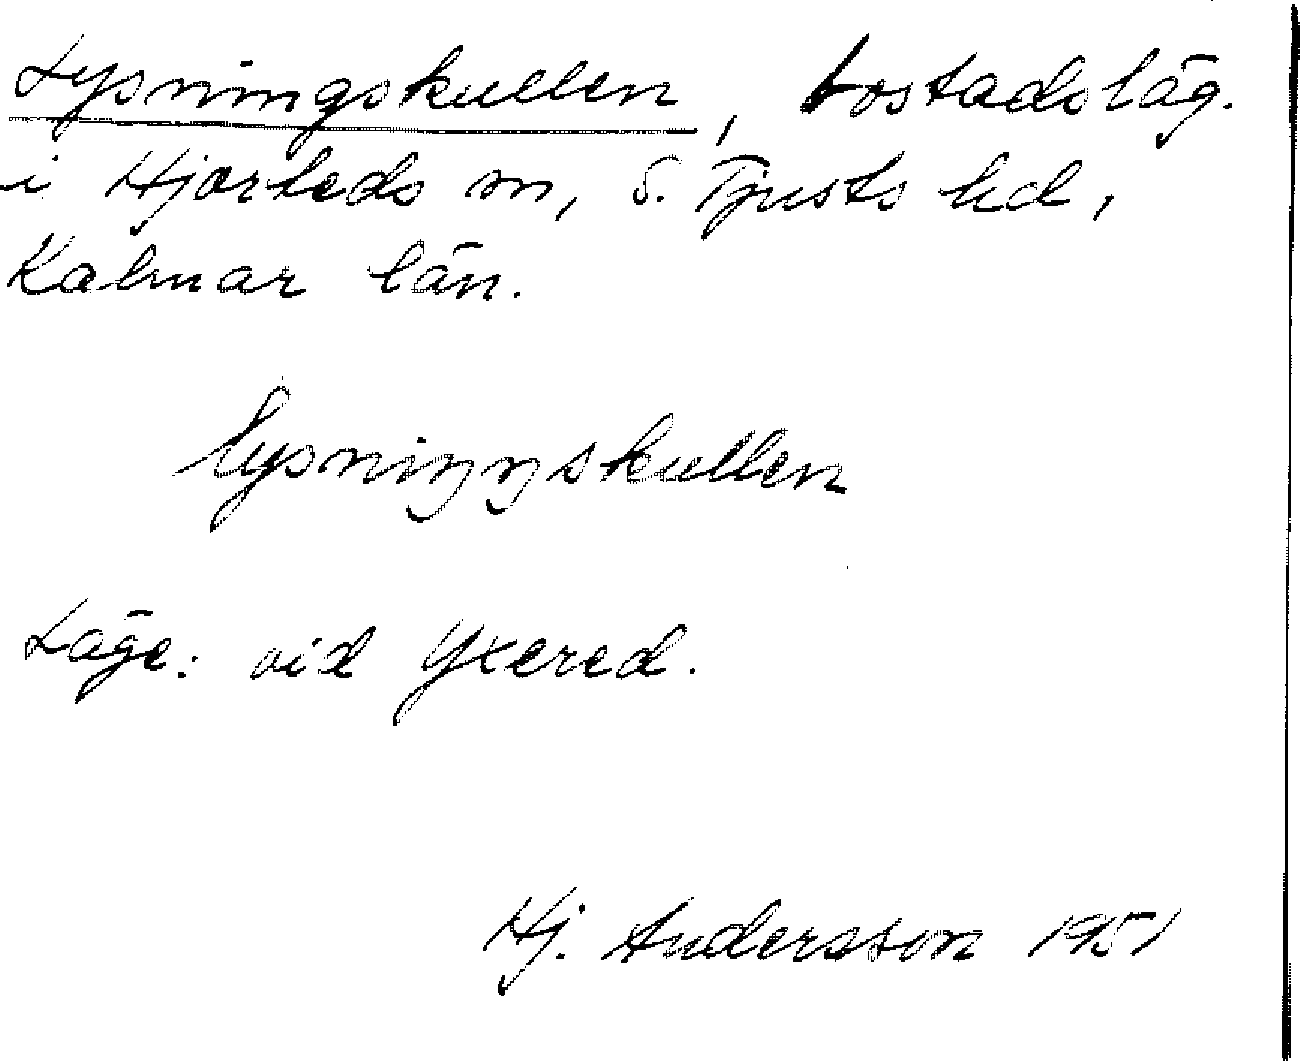 Lysningskullen, bostadsläg.
i Hjorteds sn, S. Tjusts hd,
Kalmar län.
lysniŋŋskullen
Läge: vid Yxered.
Hj. Andersson 1951